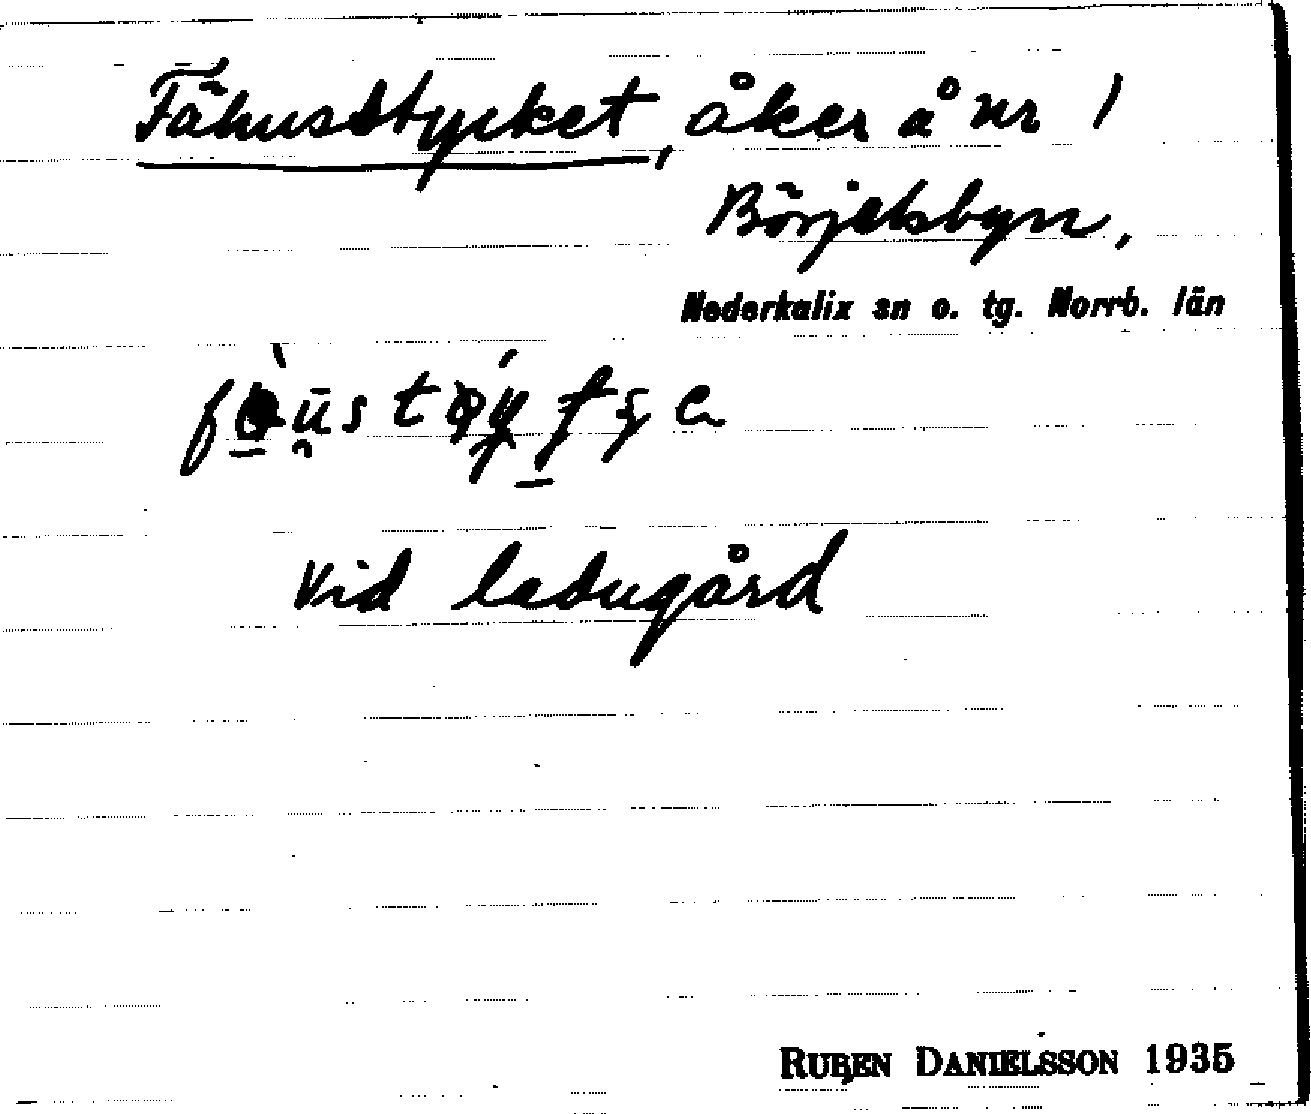 Fähusstycket, åker å nr 1
Börjelsbyn,
Nederkalix sn o. tg. Norrb. län
vid ladugård
RUBEN DANIELSSON 1935